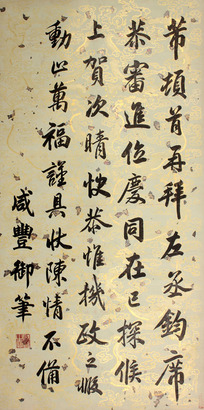 芾頓首再拜左丞鈞席
恭審進位慶同在已探候
上賀次晴快恭惟機政之暇
動止萬福謹具狀陳情不備
咸豐御筆